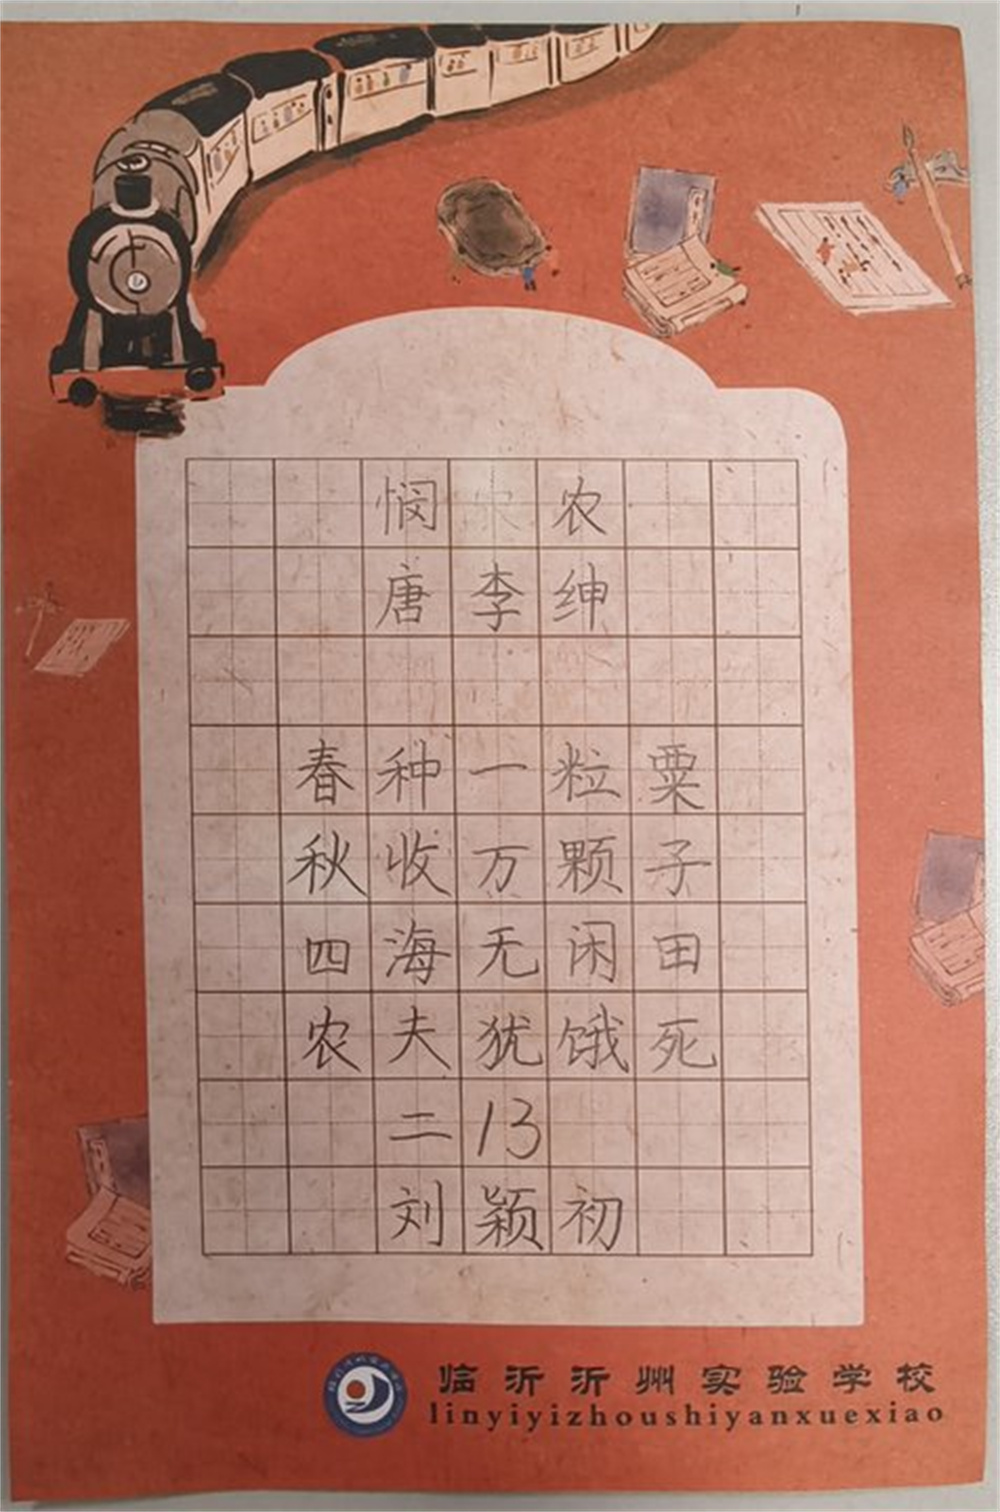 悯 农
唐李绅
春种一粒粟
秋收万颗子
四海无闲田
农夫犹饿死
二13
刘颖初
临沂沂州实验学校
linyiyizhoushiyanxuexiao